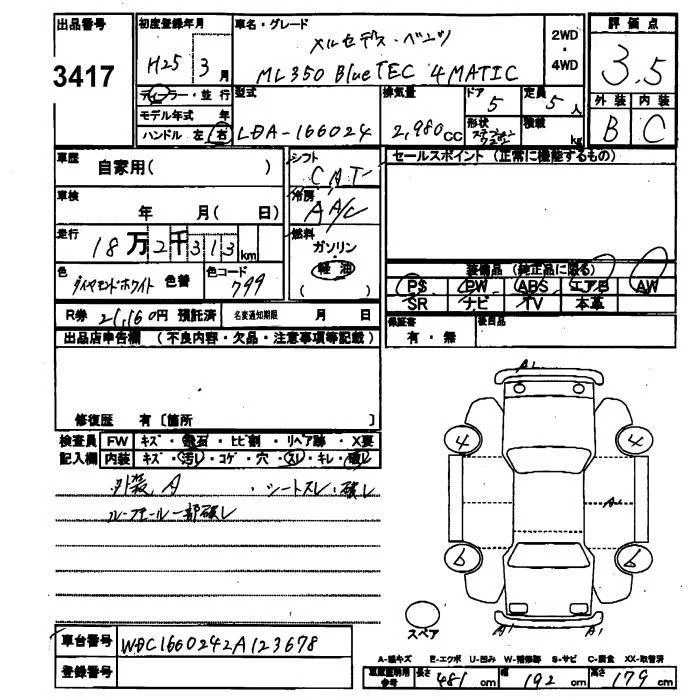 出品番号 初度登録年月 車名・グレード 評価点
メルセデス・ベンツ 2WD・4WD
3417 H25 3月 ML350 BlueTEC 4MATIC 3.5
ディーラー・並行 型式 排気量 ドア 5 定員 5人 外装 内装
モデル年式 年 B C
ハンドル 左 右 LDA-166024 2,980cc 形状 積載 kg
車歴 自家用( ) シフト CAT セールスポイント (正常に機能するもの)
車検 年 月( 日) 冷房 AA/C
走行 18万2千313km 燃料 ガソリン
軽油
( )
色 ダイヤモンドホワイト 色替 色コード 799
装備品 (純正品に限る)
PS PW ABS エアB AW
SR ナビ TV 本革
R券 21,160円 預託済 名変通知期限 月 日 保証書 有・無 後日品
出品店申告欄 (不良内容・欠品・注意事項等記載)
修復歴 有〔箇所 〕
検査員 FW キズ・飛石・ヒビ割・リペア跡・X要
記入欄 内装 キズ・汚レ・コゲ・穴・スレ・キレ・破レ
外装A ・シートスレ・破レ
一部破レ
A1
4 4
A1
6 6
スペア A1 A1
車台番号 WDC1660242A123678
登録番号
A-線キズ E-エクボ U-凹み W-補修跡 S-サビ C-腐食 XX-取替済
車庫証明用参考 長さ 481cm 幅 192cm 高さ 179cm